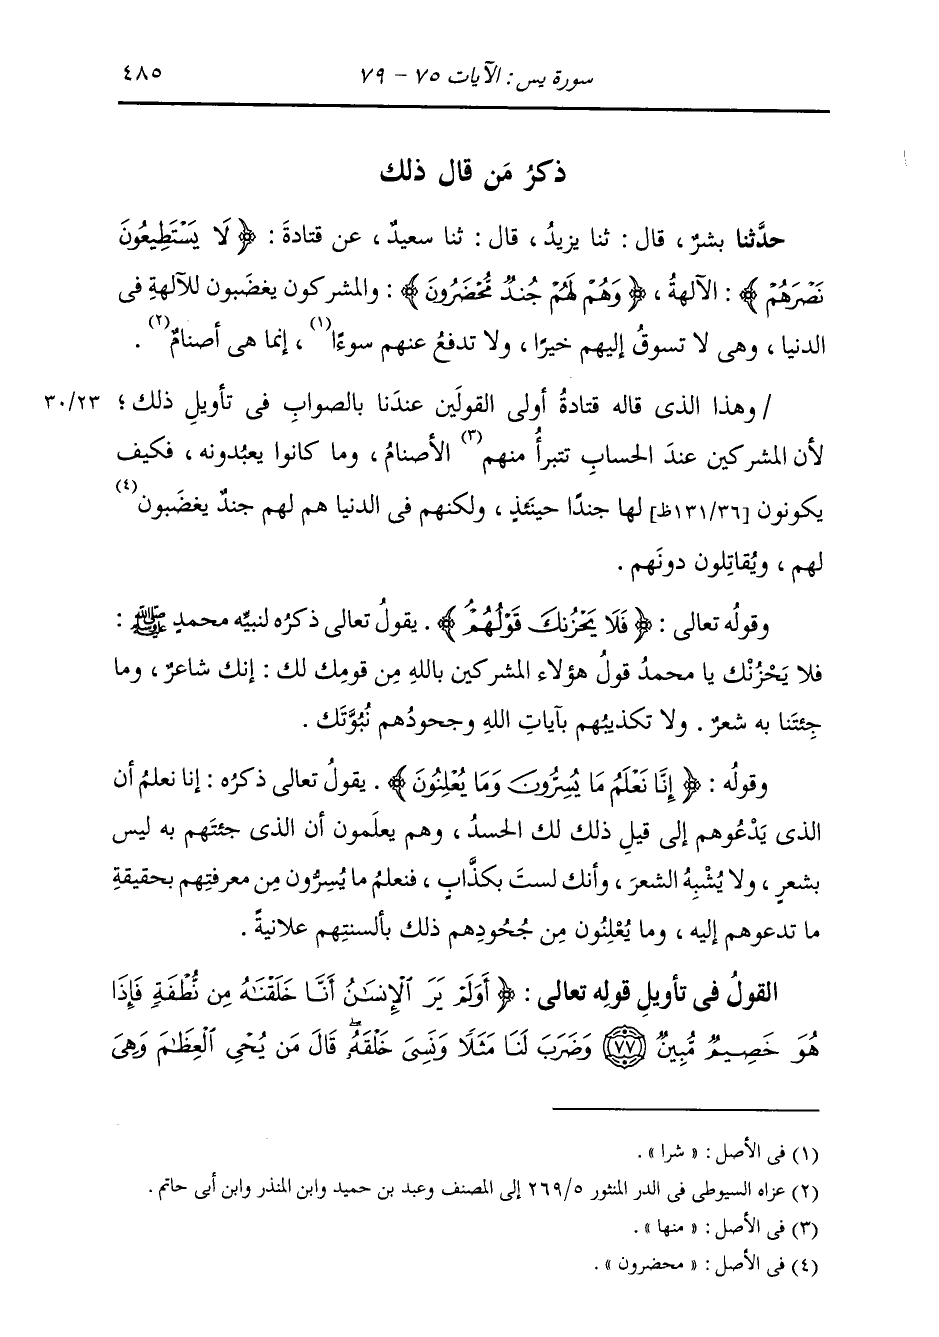 سورة يس : الآيات ٧٥ - ٧٩ ٤٨٥
ذكرُ مَن قال ذلك
حدَّثنا بشرٌ ، قال : ثنا يزيدُ ، قال : ثنا سعيدٌ ، عن قتادةَ : ﴿ لَا يَسْتَطِيعُونَ
نَصْرَهُمْ ﴾ : الآلهةُ ، ﴿ وَهُمْ لَهُمْ جُندٌ مُّحْضَرُونَ ﴾ : والمشركون يغضَبون للآلهةِ فى
الدنيا ، وهى لا تسوقُ إليهم خيرًا ، ولا تدفعُ عنهم سوءًا(١) ، إنما هى أصنامٌ(٢) .
/ وهذا الذى قاله قتادةُ أولى القولَين عندَنا بالصوابِ فى تأويلِ ذلك ؛ ٣٠/٢٣
لأن المشركين عندَ الحسابِ تتبرأُ منهم(٣) الأصنامُ ، وما كانوا يعبُدونه ، فكيف
يكونون [١٣١/٣٦ظ] لها جندًا حينَئذٍ ، ولكنهم فى الدنيا هم لهم جندٌ يغضَبون(٤)
لهم ، ويُقاتِلون دونَهم .
وقولُه تعالى : ﴿ فَلَا يَحْزُنكَ قَوْلُهُمْ ﴾ . يقولُ تعالى ذكرُه لنبيِّه محمدٍ ﷺ :
فلا يَحْزُنْك يا محمدُ قولُ هؤلاء المشركين باللهِ مِن قومِك لك : إنك شاعرٌ ، وما
جِئتَنا به شعرٌ . ولا تكذيبُهم بآياتِ اللهِ وجحودُهم نُبُوَّتَك .
وقولُه : ﴿ إِنَّا نَعْلَمُ مَا يُسِرُّونَ وَمَا يُعْلِنُونَ ﴾ . يقولُ تعالى ذكرُه : إنا نعلمُ أن
الذى يَدْعُوهم إلى قيلِ ذلك لك الحسدُ ، وهم يعلَمون أن الذى جئتَهم به ليس
بشعرٍ ، ولا يُشْبِهُ الشعرَ ، وأنك لستَ بكذَّابٍ ، فنعلمُ ما يُسِرُّون مِن معرفتِهم بحقيقةِ
ما تدعوهم إليه ، وما يُعْلِنُون مِن جُحُودِهم ذلك بألسنتِهم علانيةً .
القولُ فى تأويلِ قولِه تعالى : ﴿ أَوَلَمْ يَرَ ٱلْإِنسَٰنُ أَنَّا خَلَقْنَٰهُ مِن نُّطْفَةٍ فَإِذَا
هُوَ خَصِيمٌ مُّبِينٌ (٧٧) وَضَرَبَ لَنَا مَثَلًا وَنَسِىَ خَلْقَهُۥ قَالَ مَن يُحْىِ ٱلْعِظَٰمَ وَهِىَ
(١) فى الأصل : « شرا » .
(٢) عزاه السيوطى فى الدر المنثور ٢٦٩/٥ إلى المصنف وعبد بن حميد وابن المنذر وابن أبى حاتم .
(٣) فى الأصل : « منها » .
(٤) فى الأصل : « محضرون » .